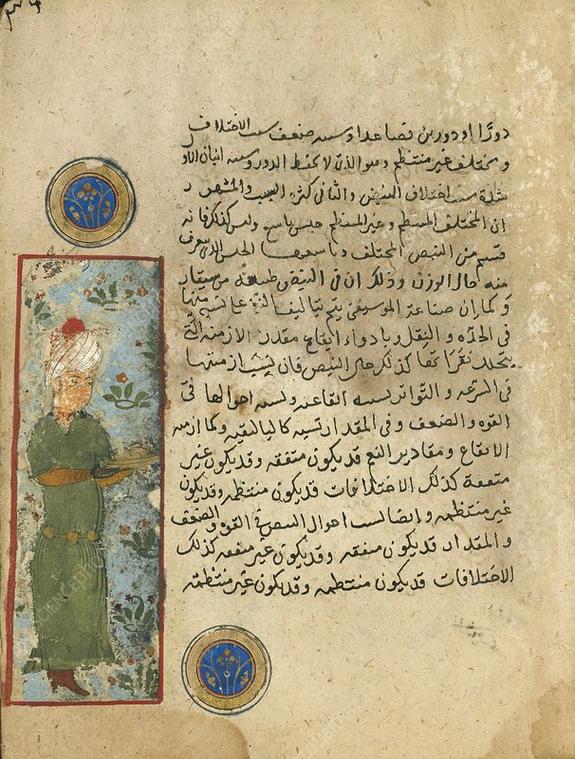 دورًا او دورين فصاعدا وسببه ضعف سبب الاختلاف
ومختلف غير منتظم وهو الذي لا يحفظ الدور وسببه
سبب اختلاف النبض والثاني كثرة السبب والمشهور
ان المختلف المنتظم وغير المنتظم جنس تاسع وليس كذلك فانه
قسم من النبض المختلف الجنس الذي يعرف
منه حال الوزن وذلك ان في النبض طبيعة موسيقار
وكما ان صناعة الموسيقى يتم بتاليف النغم على نسبة بينها
في الحدة والثقل وبادوار ايقاع مقدار الازمنة التي
يتخلل نقراتها كذلك حال النبض فان نسبة ازمنتها
في السرعة والتواتر نسبة ايقاعية ونسبة احوالها في
القوة والضعف وفي المقدار نسبة كالتاليفية وكما ازمنة
الايقاع ومقادير النغم قد يكون متفقة وقد يكون غير
متفقة كذلك الاختلافات قد يكون منتظمة وقد يكون
غير منتظمة وايضا نسب احوال النبض في القوة والضعف
والمقدار قد يكون متفقة وقد يكون غير متفقة كذلك
الاختلافات قد يكون منتظمة وقد يكون غير منتظمة